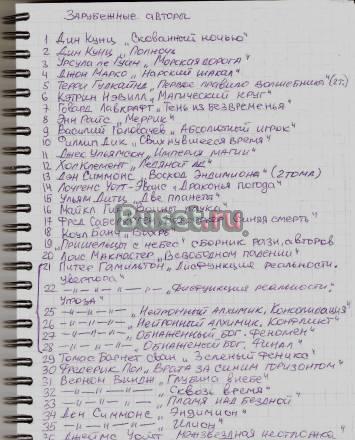 Зарубежные авторы
1 Дин Кунц „Скованный ночью"
2 Дин Кунц „Полночь
3 Урсула ле Гуин „Морская дорога"
4 Джон Марко „Нарский шакал"
5 Терри Гудкайнд „Первое правило волшебника" (2т.)
6 Кэтрин Нэвилл „Магический круг"
7 Говард Лавкрафт „Тень из безвременья"
8 Энн Райс „Меррик"
9 Василий Головачев „Абсолютный игрок"
10 Филип Дик „Свихнувшееся время"
11 Джес Ульямсон „Империя магии"
12 Хол Клемент „Ледяной ад"
13 Дэн Симмонс „Восход Эндимиона" (2 тома)
14 Лоуренс Уотт-Эванс „Драконья погода"
15 Уильям Дитц „Две планеты"
16 Майкл
17 Фред Саберхаген смерть"
18 Коул Банч „Вихрь"
19 „Пришельцы с небес" сборник разн. авторов
20 Лоис Макмастер „В свободном падении"
21 Питер Гамильтон „Дисфункция реальности.
Увертюра"
22 —//— —//— „Дисфункция реальности:
Угроза"
25 —//— —//— „Нейтронный алхимик, Консолидация"
26 —//— —//— „Нейтронный алхимик, Конфликт"
27 —//— —//— „Обнаженный Бог: Феномен"
28 —//— —//— „Обнаженный Бог, Финал"
29 Томас Барнет Сван „Зеленый феникс"
30 Фредерик Пол „Врата за синим горизонтом"
31 Вернон Виндж „Глубина в небе"
32 —//— —//— „Сквозь время"
33 —//— —//— „Пламя над бездной
34 Дэн Симмонс „Эндимион"
35 —//— —//— „Илион"
Джеймс Уайт „Межзвездная неотложка
Buset.ru